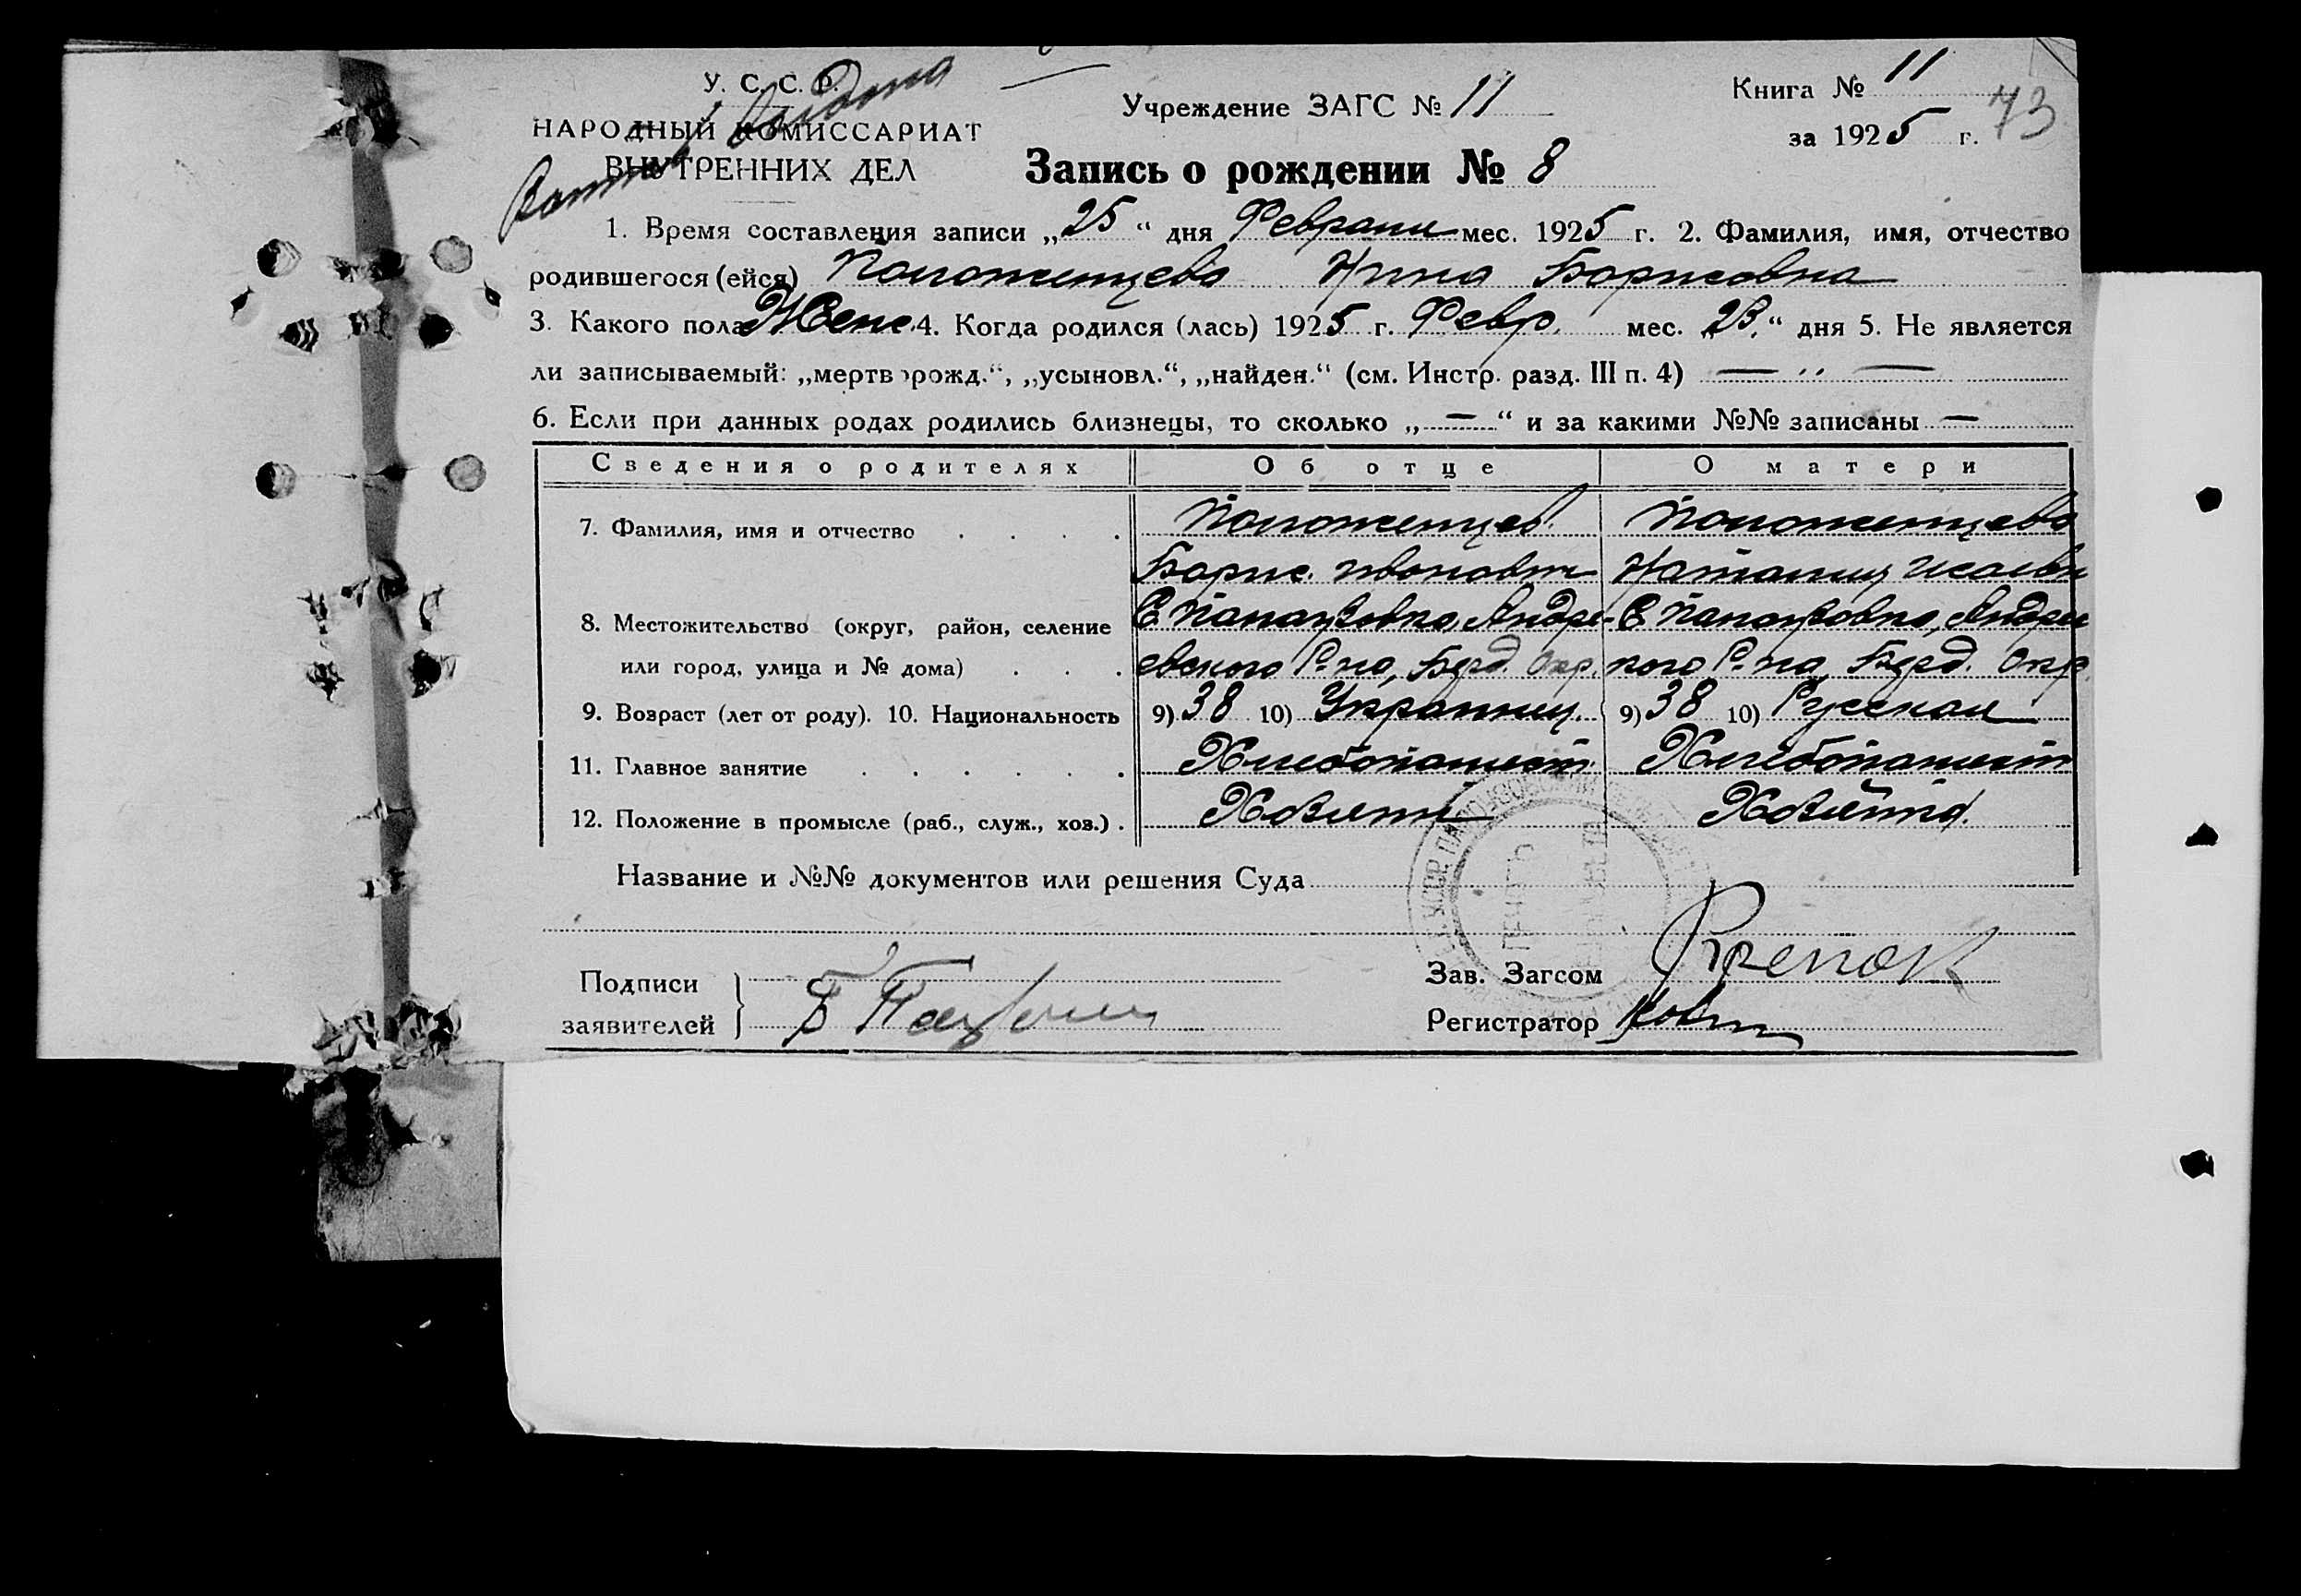 У. С. С. Р.
НАРОДНЫЙ КОМИССАРИАТ
ВНУТРЕННИХ ДЕЛ
Учреждение ЗАГС № 11
Книга № 11
за 1925 г. 73
Запись о рождении № 8
1. Время составления записи „25“ дня Февраля мес. 1925 г. 2. Фамилия, имя, отчество
родившегося (ейся) Положенцева Нина Борисовна
3. Какого пола Женс. 4. Когда родился (лась) 1925 г. Февр. мес. „23.“ дня 5. Не является
ли записываемый: „мертворожд.“, „усыновл.“, „найден.“ (см. Инстр. разд. III п. 4) — „ —
6. Если при данных родах родились близнецы, то сколько „—“ и за какими №№ записаны —
Сведения о родителях Об отце О матери
7. Фамилия, имя и отчество . . . . Положенцев. Положенцева
Борис. Ивонович Наталия
8. Местожительство (округ, район, селение С Андре- С Андре
или город, улица и № дома) . . . евского Р-на, Берд. Окр. кого Р-на, Берд. Окр.
9. Возраст (лет от роду). 10. Национальность 9) 38 10) Украинец. 9) 38 10) Русская
11. Главное занятие . . . . . . Хлебопашест. Хлебопашест
12. Положение в промысле (раб., служ., хоз.) .
Название и №№ документов или решения Суда
Подписи
заявителей
Зав. Загсом
Регистратор